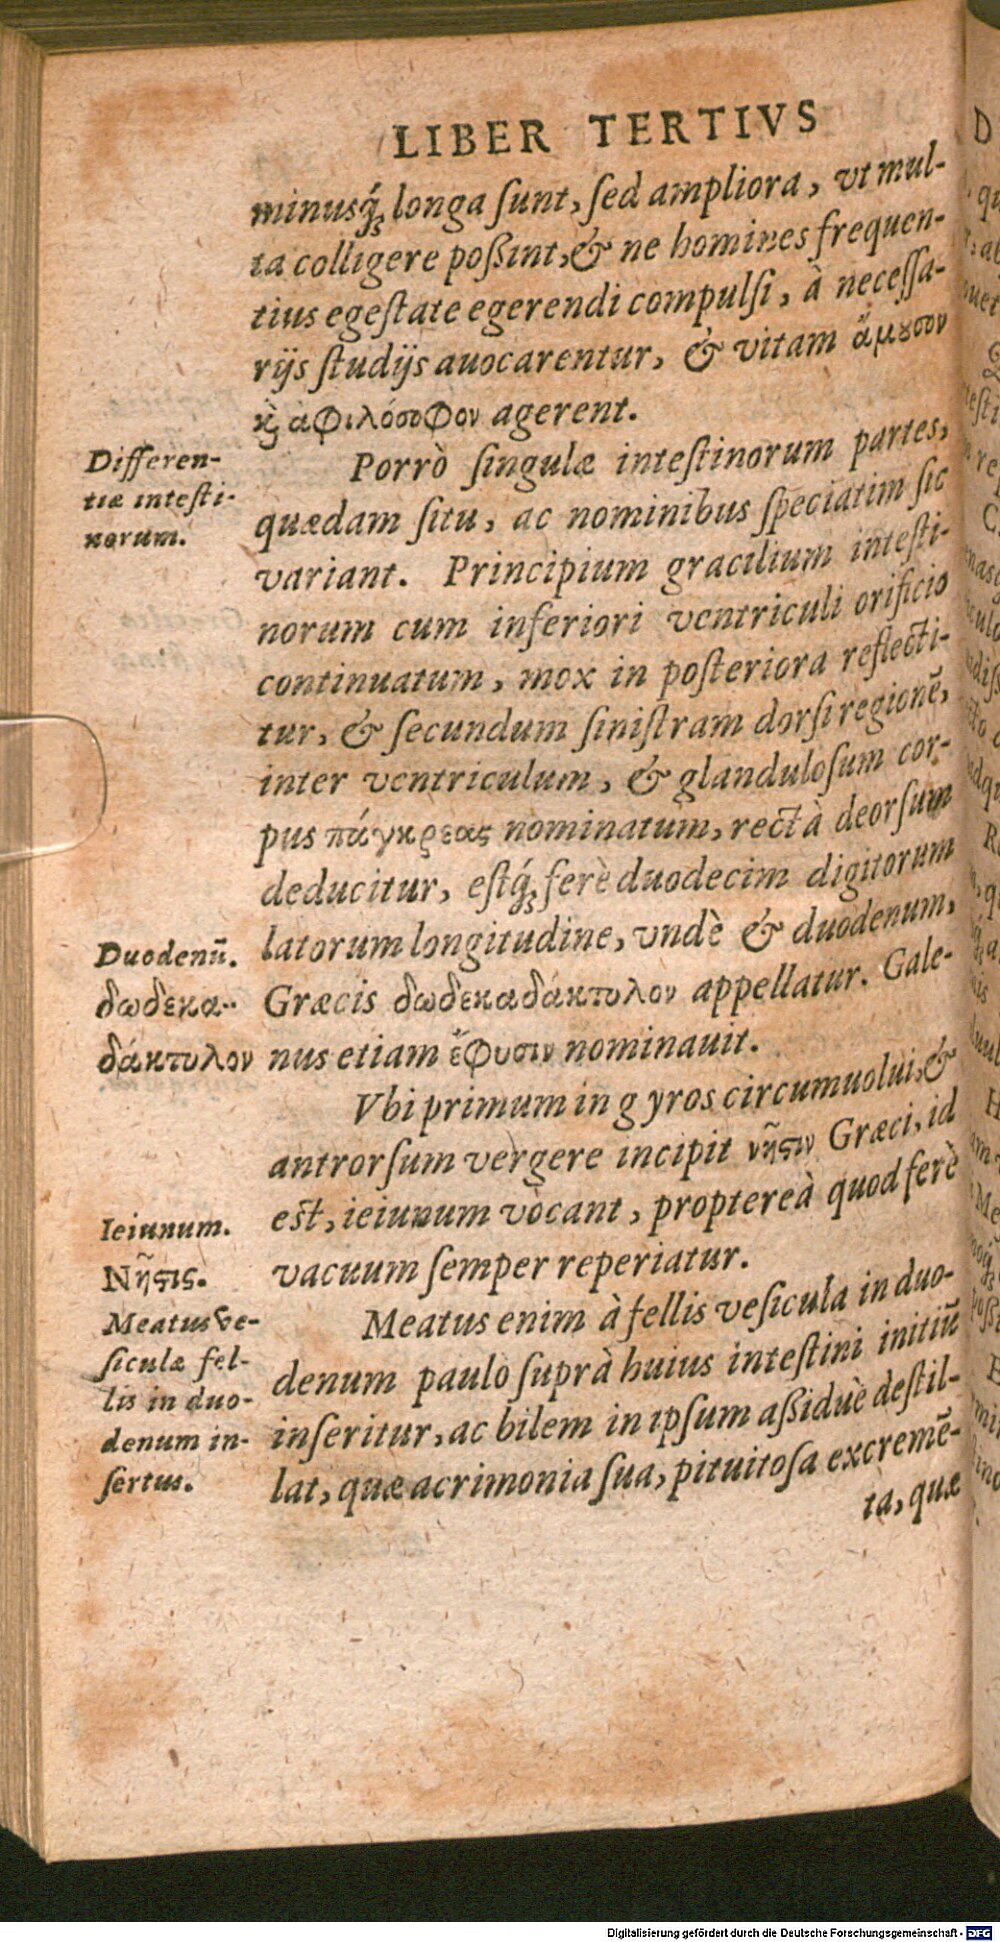 LIBER TERTIVS
minusq́ꝫ longa ſunt, ſed ampliora, vt mul-
ta colligere poßint, & ne homines frequen-
tius egeſtate egerendi compulſi, à neceſſa-
rijs ſtudijs auocarentur, & vitam ἄμουσον
κ̀ ἀφιλόσοφον agerent.
Differen-
tiæ inteſti-
norum.
Porrò ſingulæ inteſtinorum partes,
quædam ſitu, ac nominibus ſpeciatim ſic
variant. Principium gracilium inteſti-
norum cum inferiori ventriculi orificio
continuatum, mox in poſteriora reflecti-
tur, & ſecundum ſiniſtram dorſi regionẽ,
inter ventriculum, & glanduloſum cor-
pus πάγκρεας nominatum, rectà deorſum
deducitur, eſtq́ꝫ ferè duodecim digitorum
Duodenũ.
δωδεκα-
δάκτυλον
latorum longitudine, vndè & duodenum,
Græcis δωδεκαδάκτυλον appellatur. Gale-
nus etiam ἔφυσιν nominauit.
Vbi primum in gyros circumuolui, &
antrorſum vergere incipit νῆϛιν Græci, id
eſt, ieiunum vocant, propterea quod ferè
vacuum ſemper reperiatur.
Ieiunum.
Νῆϛις.
Meatus ve-
ſiculæ fel-
lis in duo-
denum in-
ſertus.
Meatus enim à fellis veſicula in duo-
denum paulò ſuprà huius inteſtini initiũ
inſeritur, ac bilem in ipſum aßiduè deſtil-
lat, quæ acrimonia ſua, pituitoſa excremẽ-
ta, quæ
Digitalisierung gefördert durch die Deutsche Forschungsgemeinschaft - DFG